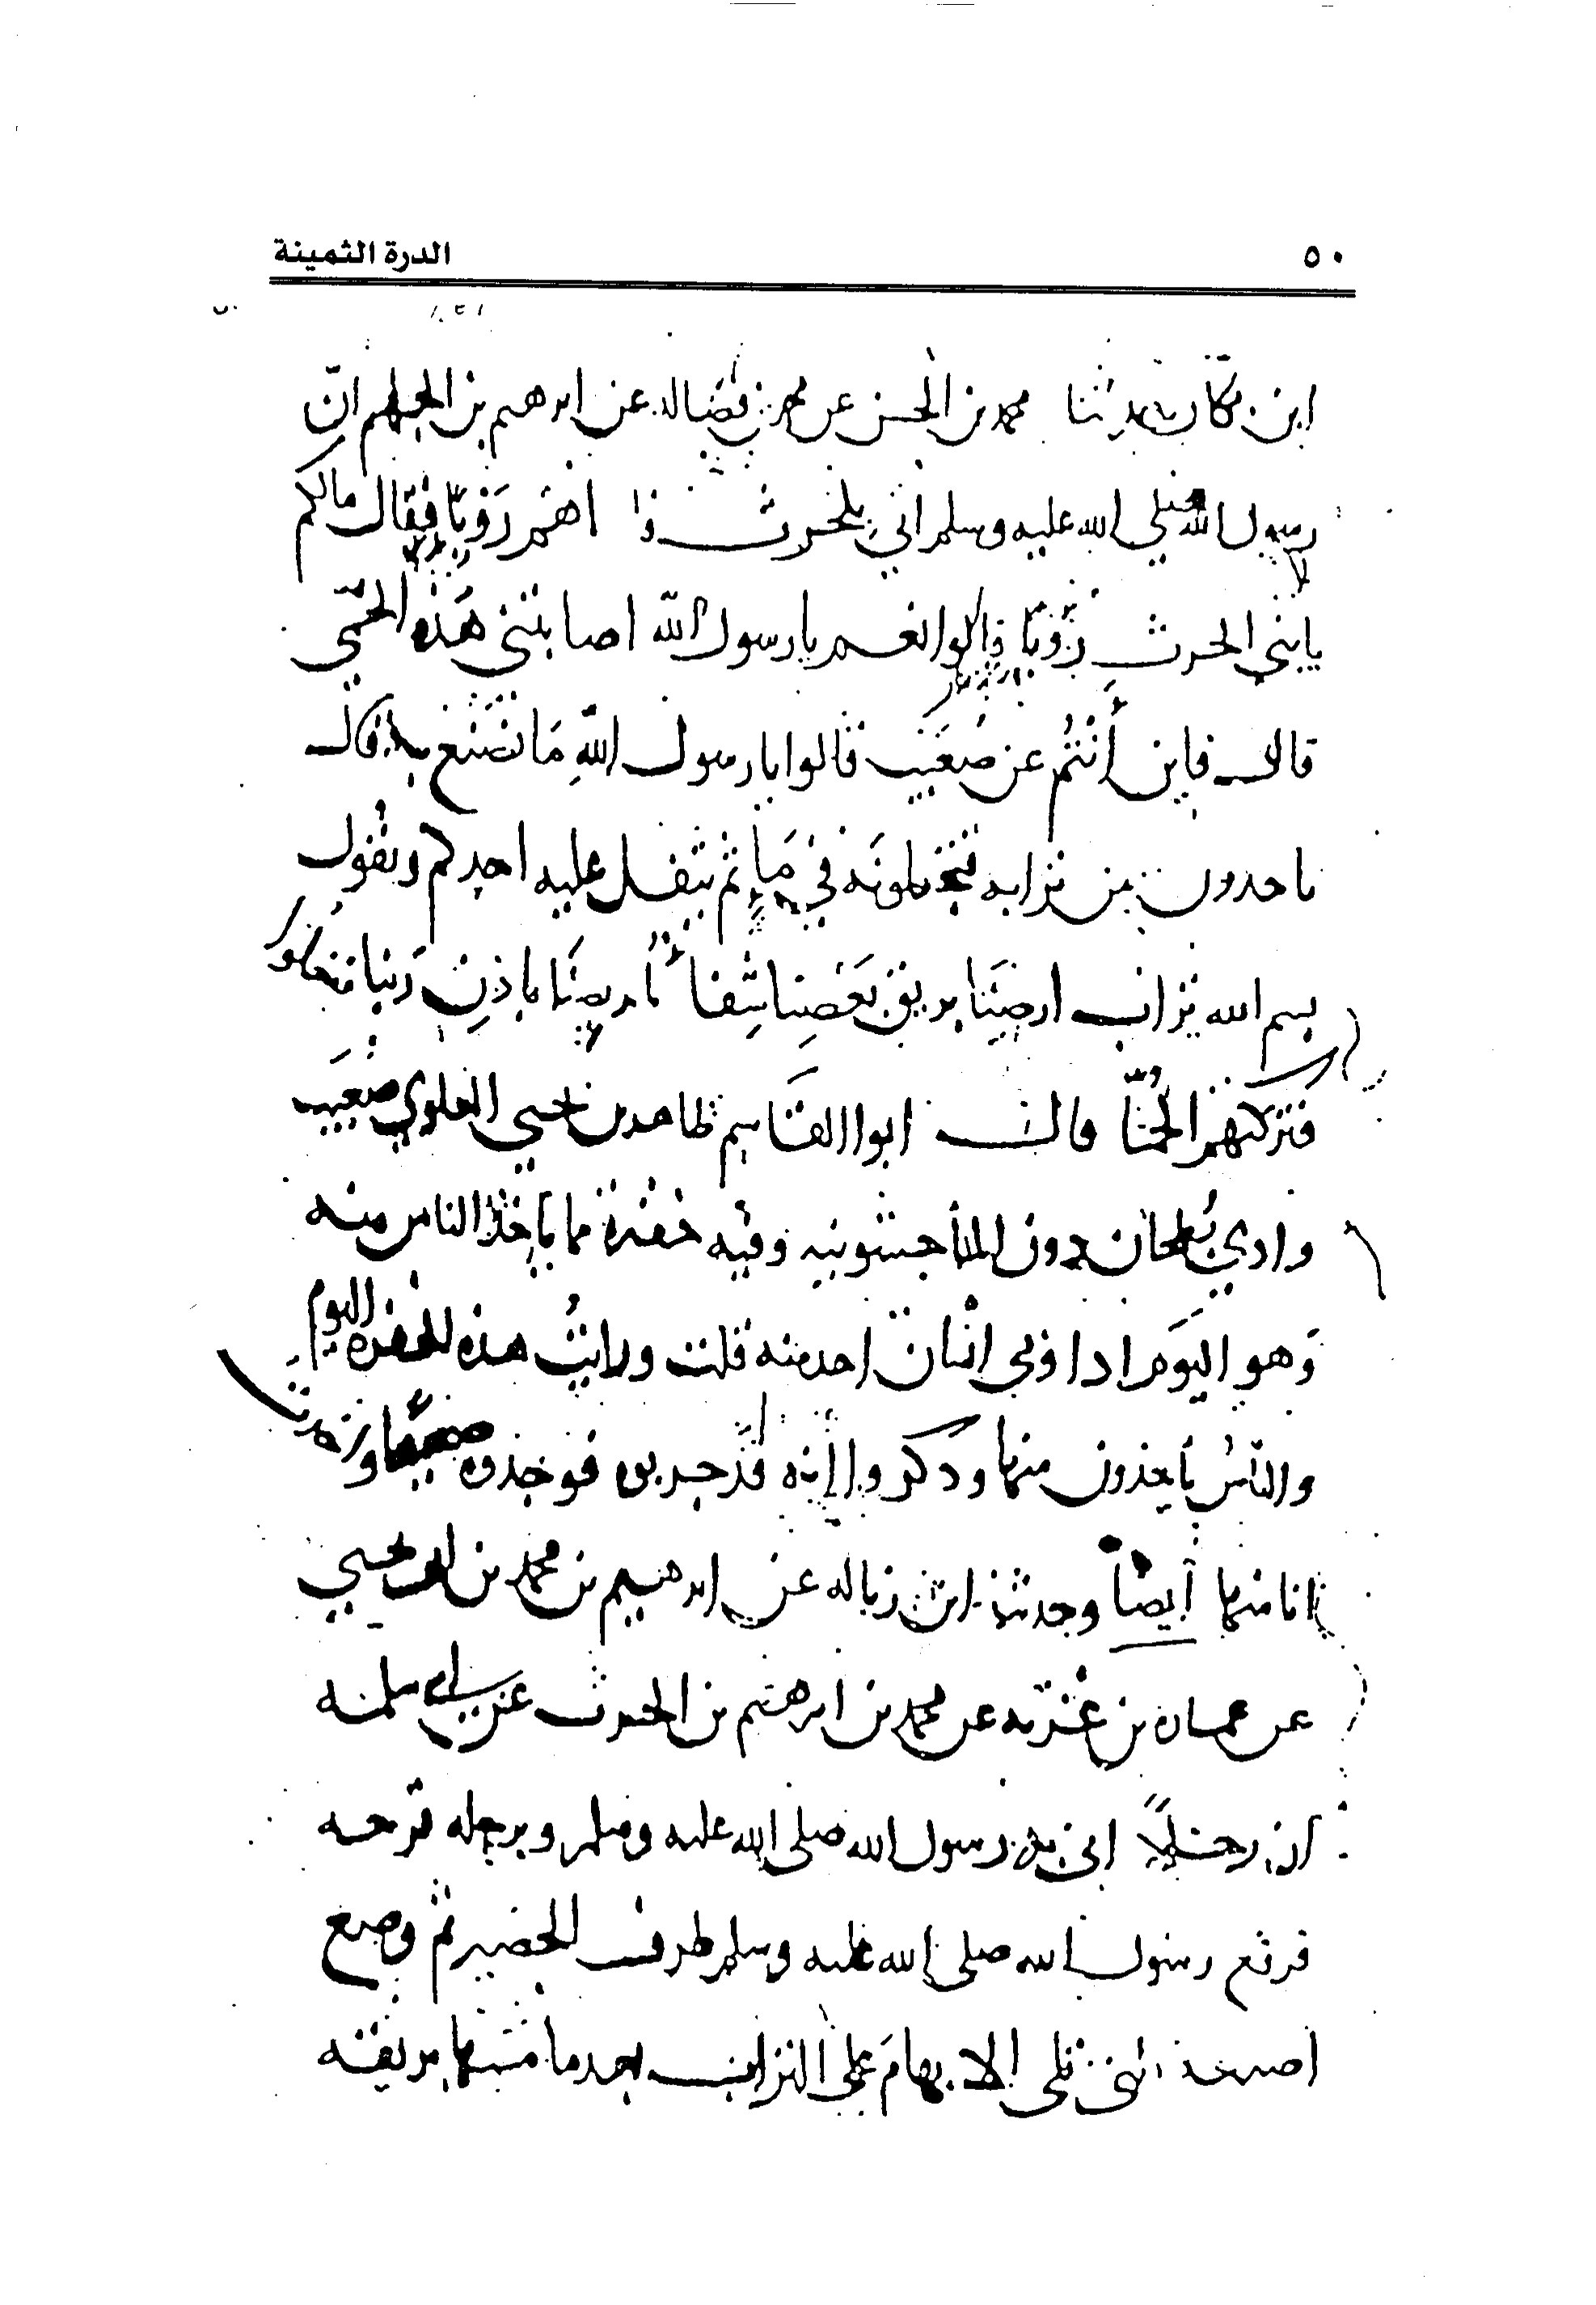 ٥٠
الدرة الثمينة
ابن بكار حدثنا محمد بن الحسن عن محمد بن فضاله عن ابرهيم بن الجهم ان
رسول الله صلى الله عليه وسلم اتي بلحرث فاذا هم رَوْبَا فقال مالكم
يا بني الحرث رَوْبَا قالوا نعم يا رسول الله اصابتني هَذه الحمى
قال فاين أنتُم عن صُعَيْب قالوا يا رسول اللهِ مَا نصْنَع به قال
تاخدون من ترابه فتجعلونَه في مَاءٍ ثم يتفل عليه احدكم ويقول
بسم الله تراب ارضِنَا بريق بَعْضِنا شِفَاء لمريضِنَا باذنِ رَبنا ففعلوا
فتركتهم الحُمَّا قال ابوا القاسم طاهر بن يحيى العلوي صُعَيب
وادي بُطحان دون الماجشونيه وفيه حفرة مما ياخذ الناس منه
وَهو اليَوم اذا وبي انسان اخد منه قلت ورايتُ هذه الحفره اليوم
والناسُ ياخذون منها وذكروا انه قد جربوه فوجدوه صحيحا واخذت
انا منها أيضاً وحدثنا ابن زباله عن ابرهيم بن محمد بن ابي يحيى
عن عماره بن غزيه عن محمد بن ابرهيم بن الحرث عن ابي سلمه
ان رجلاً اتي به رسول الله صلى الله عليه وسلم وبرجله قرحه
فرفع رسول الله صلى الله عليه وسلم طرف الحصير ثم وضع
اصبعه التي تلي الابهامَ على التراب بعد ما مسها بريقه